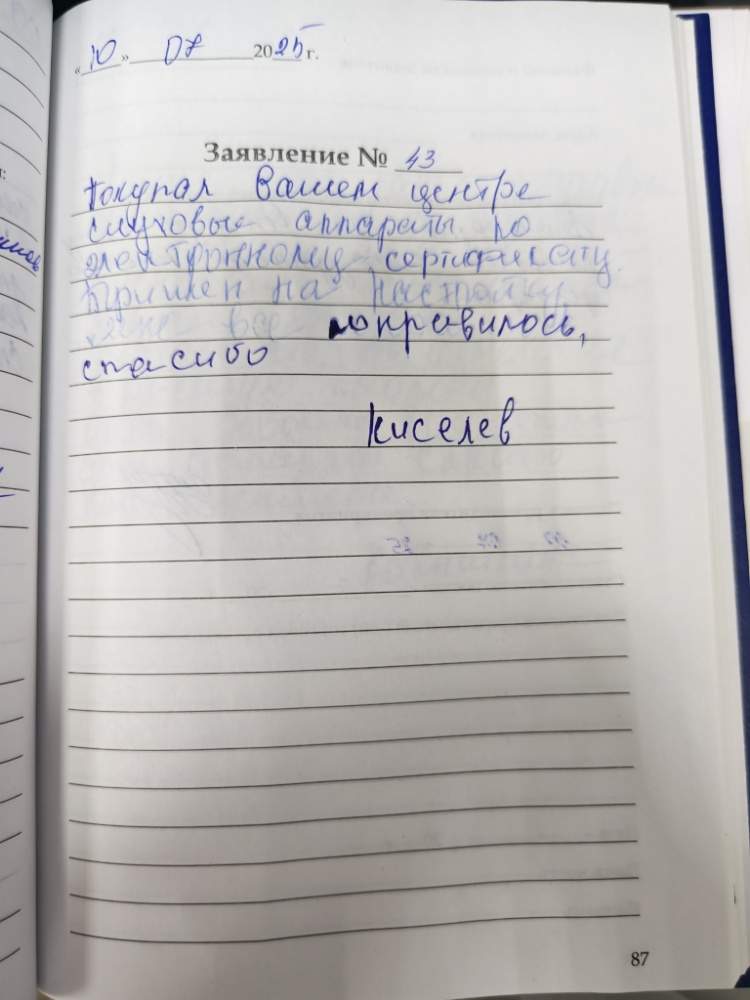 «10» 07 2025 г.
Заявление № 43
Покупал Вашем центре
слуховые аппараты по
электронному сертификату.
Пришел на настройку,
мне все понравилось,
спасибо
Киселев
87